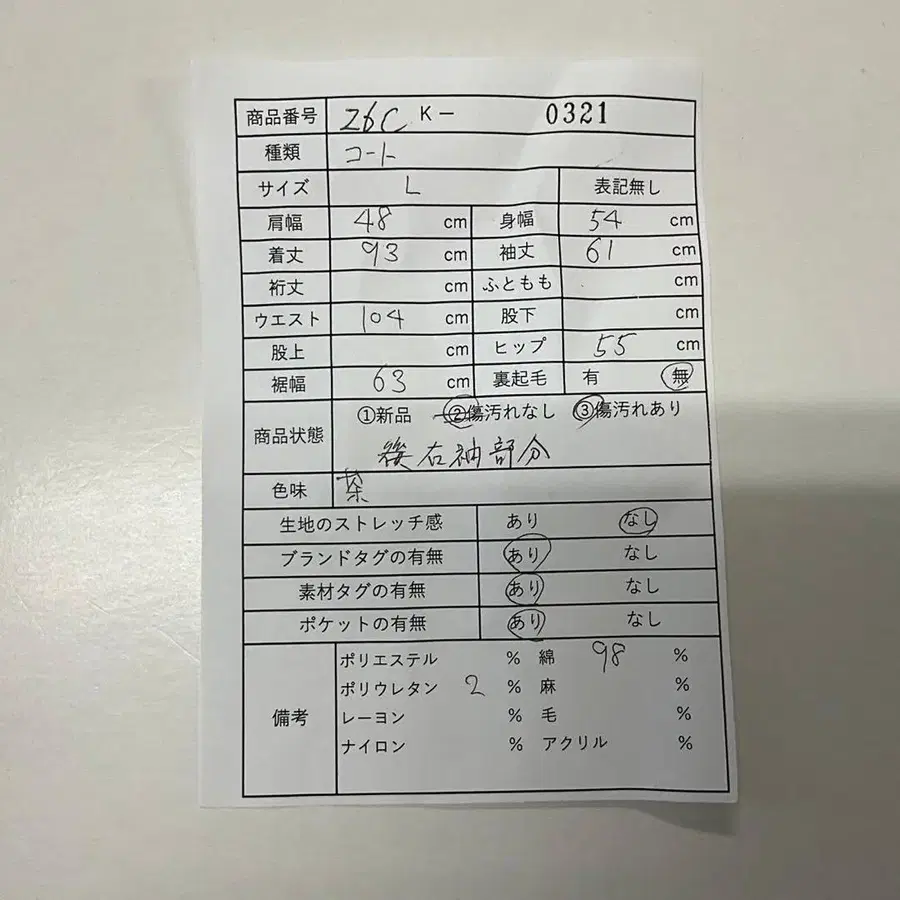 商品番号 26C K- 0321
種類 コート
サイズ L 表記無し
肩幅 48 cm 身幅 54 cm
着丈 93 cm 袖丈 61 cm
裄丈 cm ふともも cm
ウエスト 104 cm 股下 cm
股上 cm ヒップ 55 cm
裾幅 63 cm 裏起毛 有 無
商品状態 ①新品 ②傷汚れなし ③傷汚れあり
後右袖部分
色味 茶
生地のストレッチ感 あり なし
ブランドタグの有無 あり なし
素材タグの有無 あり なし
ポケットの有無 あり なし
備考 ポリエステル % 綿 98 %
ポリウレタン 2 % 麻 %
レーヨン % 毛 %
ナイロン % アクリル %